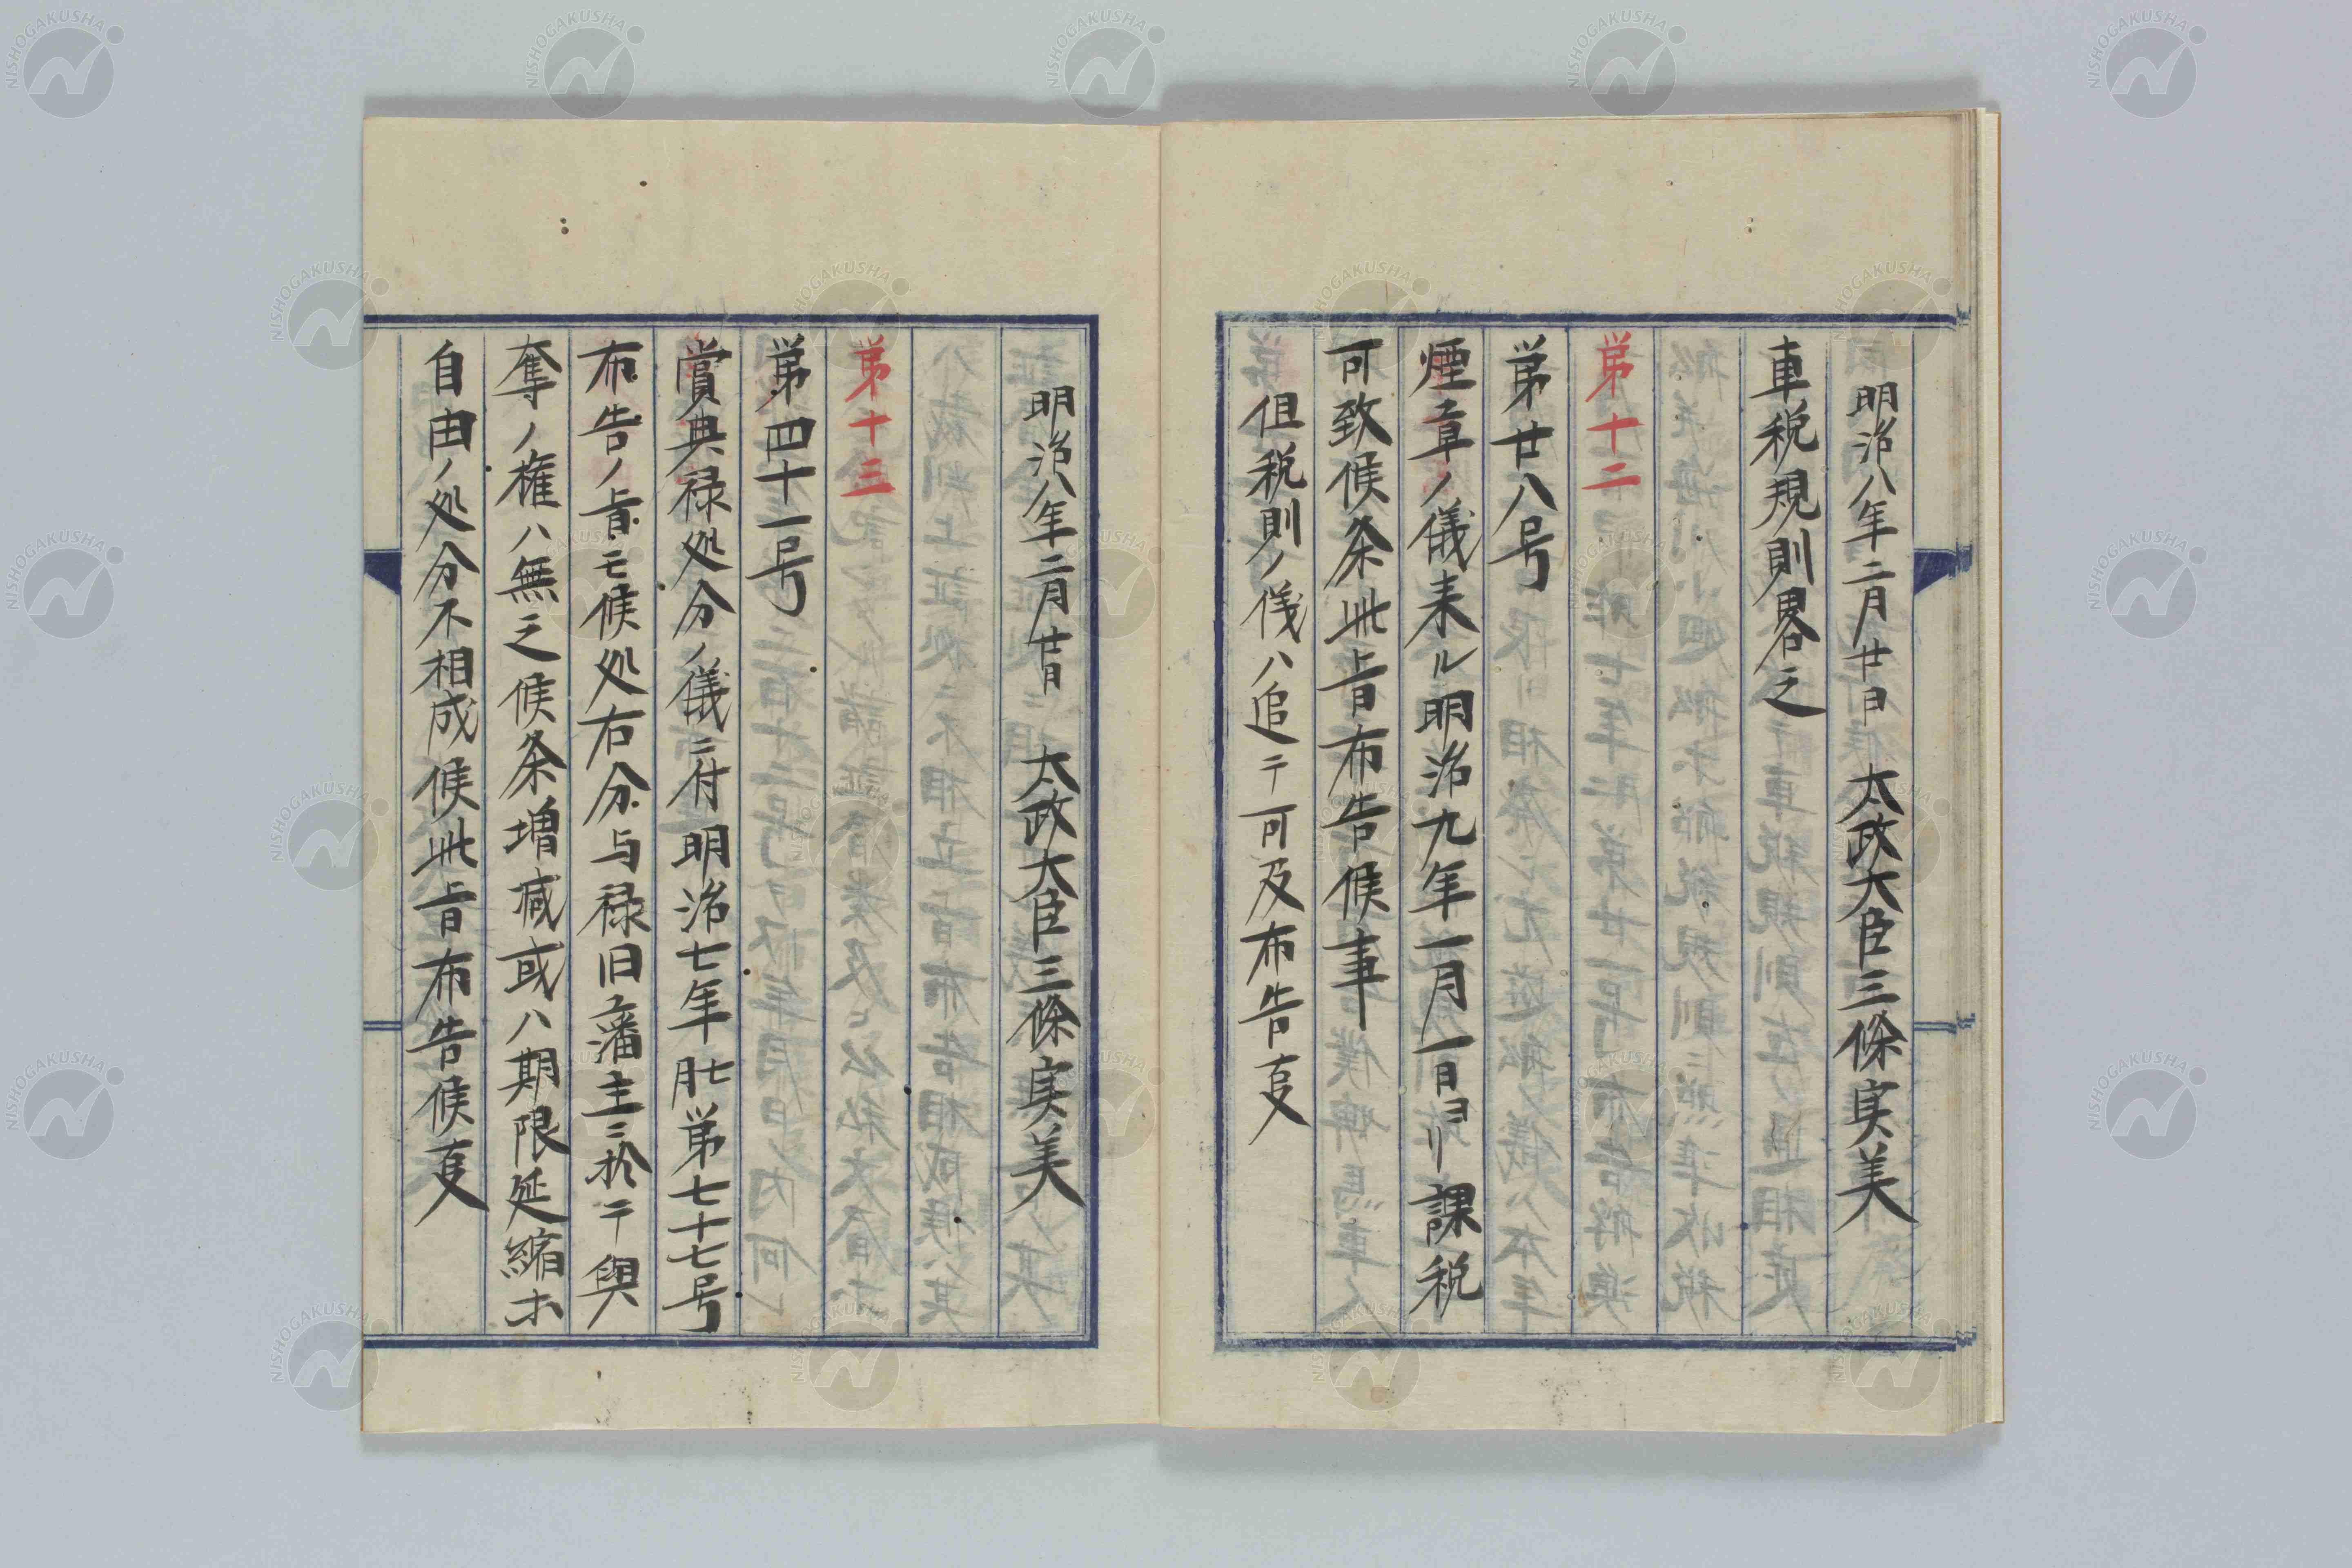 明治八年二月廿日　太政大臣三條実美
車税規則畧之
第十二
第廿八号
煙草ノ儀来ル明治九年一月一日ヨリ課税
可致候条此旨布告候事
但税則ノ儀ハ追テ可及布告叓
明治八年二月廿日　太政大臣三條実美
第十三
第四十一号
賞典禄処分ノ儀ニ付明治七年七月第七十七号
布告ノ旨モ候処右分与禄旧藩主ニ於テ與
奪ノ権ハ無之候条増减或ハ期限延縮ホ
自由ノ処分不相成候此旨布告候叓
NISHOGAKUSHA